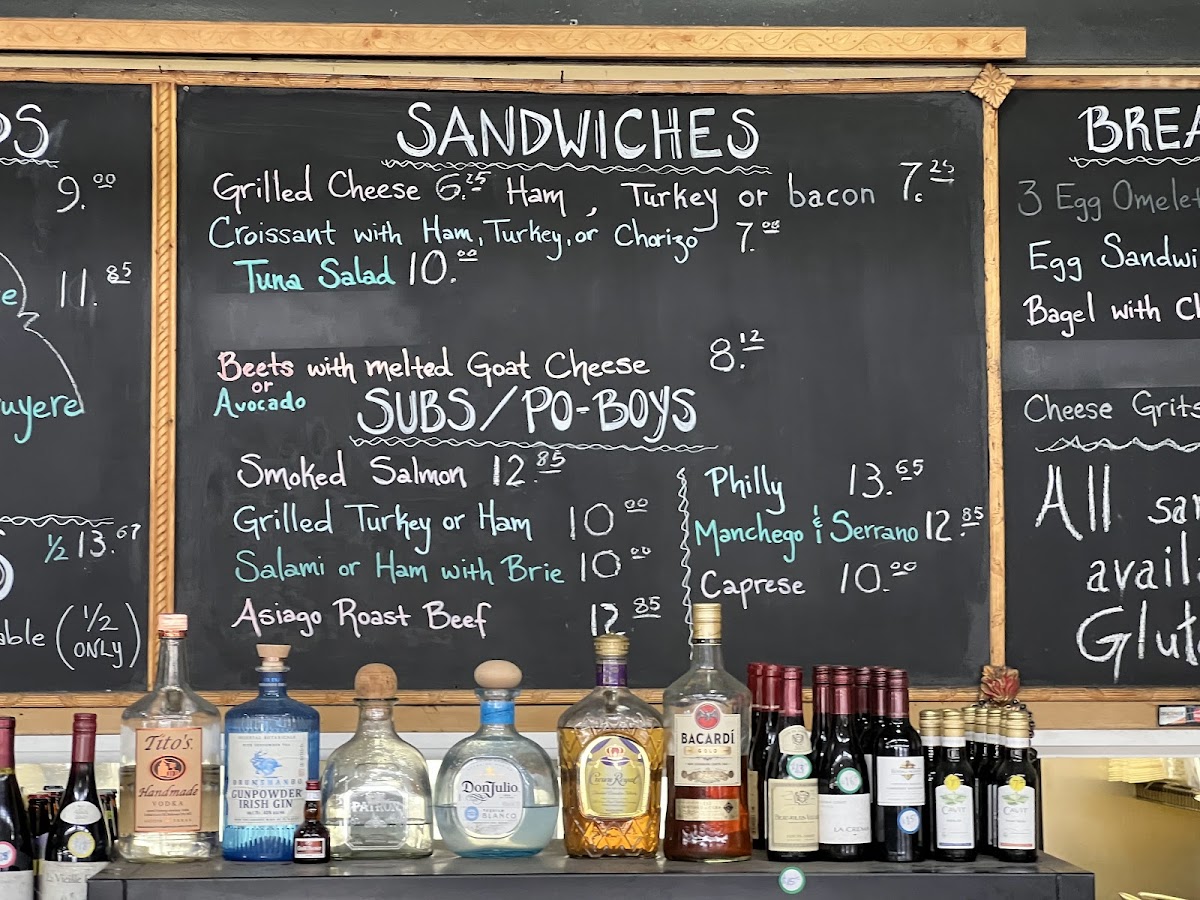 SANDWICHES
Grilled Cheese 6.25 Ham, Turkey or bacon 7.25
Croissant with Ham, Turkey, or Chorizo 7.00
Tuna Salad 10.00
Beets with melted Goat Cheese 8.12
or
Avocado
SUBS/PO-BOYS
Smoked Salmon 12.85
Grilled Turkey or Ham 10.00
Salami or Ham with Brie 10.00
Asiago Roast Beef 12.85
Philly 13.65
Manchego & Serrano 12.85
Caprese 10.00
9.00
11.85
uyere
½ 13.67
able (½ ONLY)
BREA
3 Egg Omelet
Egg Sandwi
Bagel with Ch
Cheese Grits
All san
availa
Glut
Tito's
Handmade
VODKA
GUNPOWDER
IRISH GIN
PATRÓN
Don Julio
BLANCO
Crown Royal
BACARDÍ
GOLD
LA CREMA